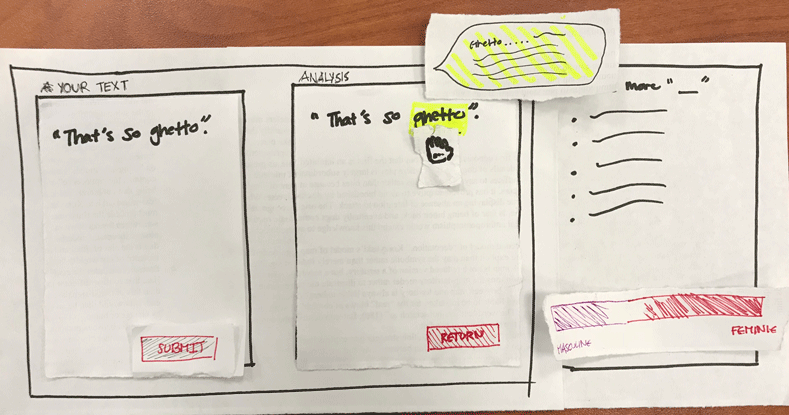 # YOUR TEXT
"That's so ghetto".
SUBMIT
ANALYSIS
"That's so ghetto".
RETURN
Ghetto.....
more "__"
MASCULINE
FEMINIE